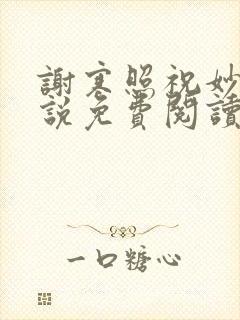 謝寒照祝妙
說免費閱讀
一口糖心